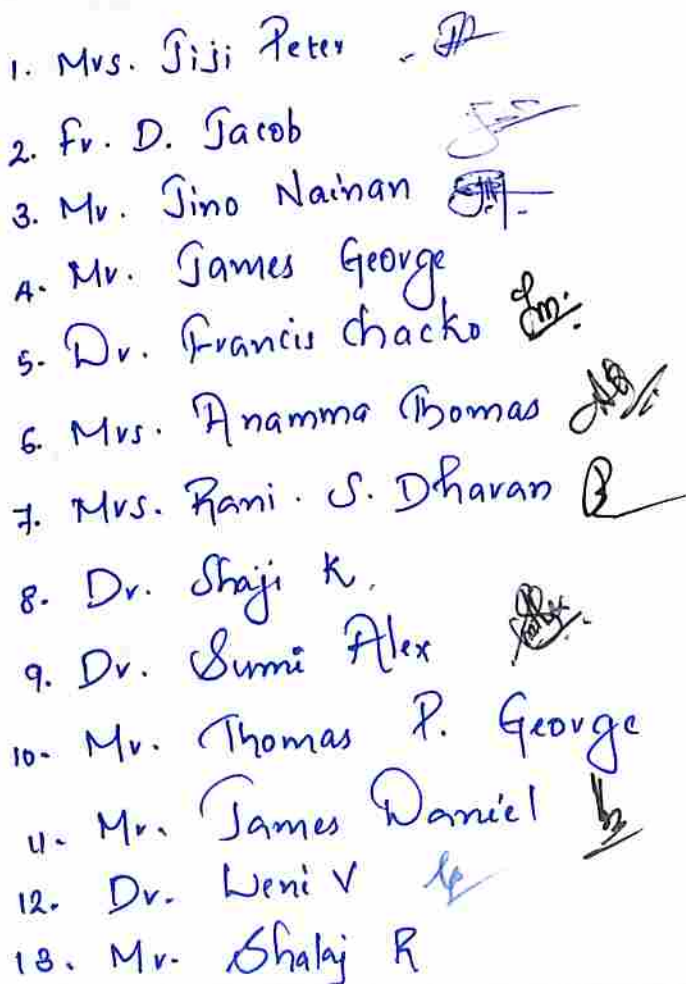 1. Mrs. Jiji Peter
2. Fr. D. Jacob
3. Mr. Jino Nainan
4. Mr. James George
5. Dr. Francis Chacko
6. Mrs. Anamma Thomas
7. Mrs. Rani. S. Dharan
8. Dr. Shaji K.
9. Dr. Sumi Alex
10. Mr. Thomas P. George
11. Mr. James Daniel
12. Dr. Leni V
13. Mr. Shalaj R